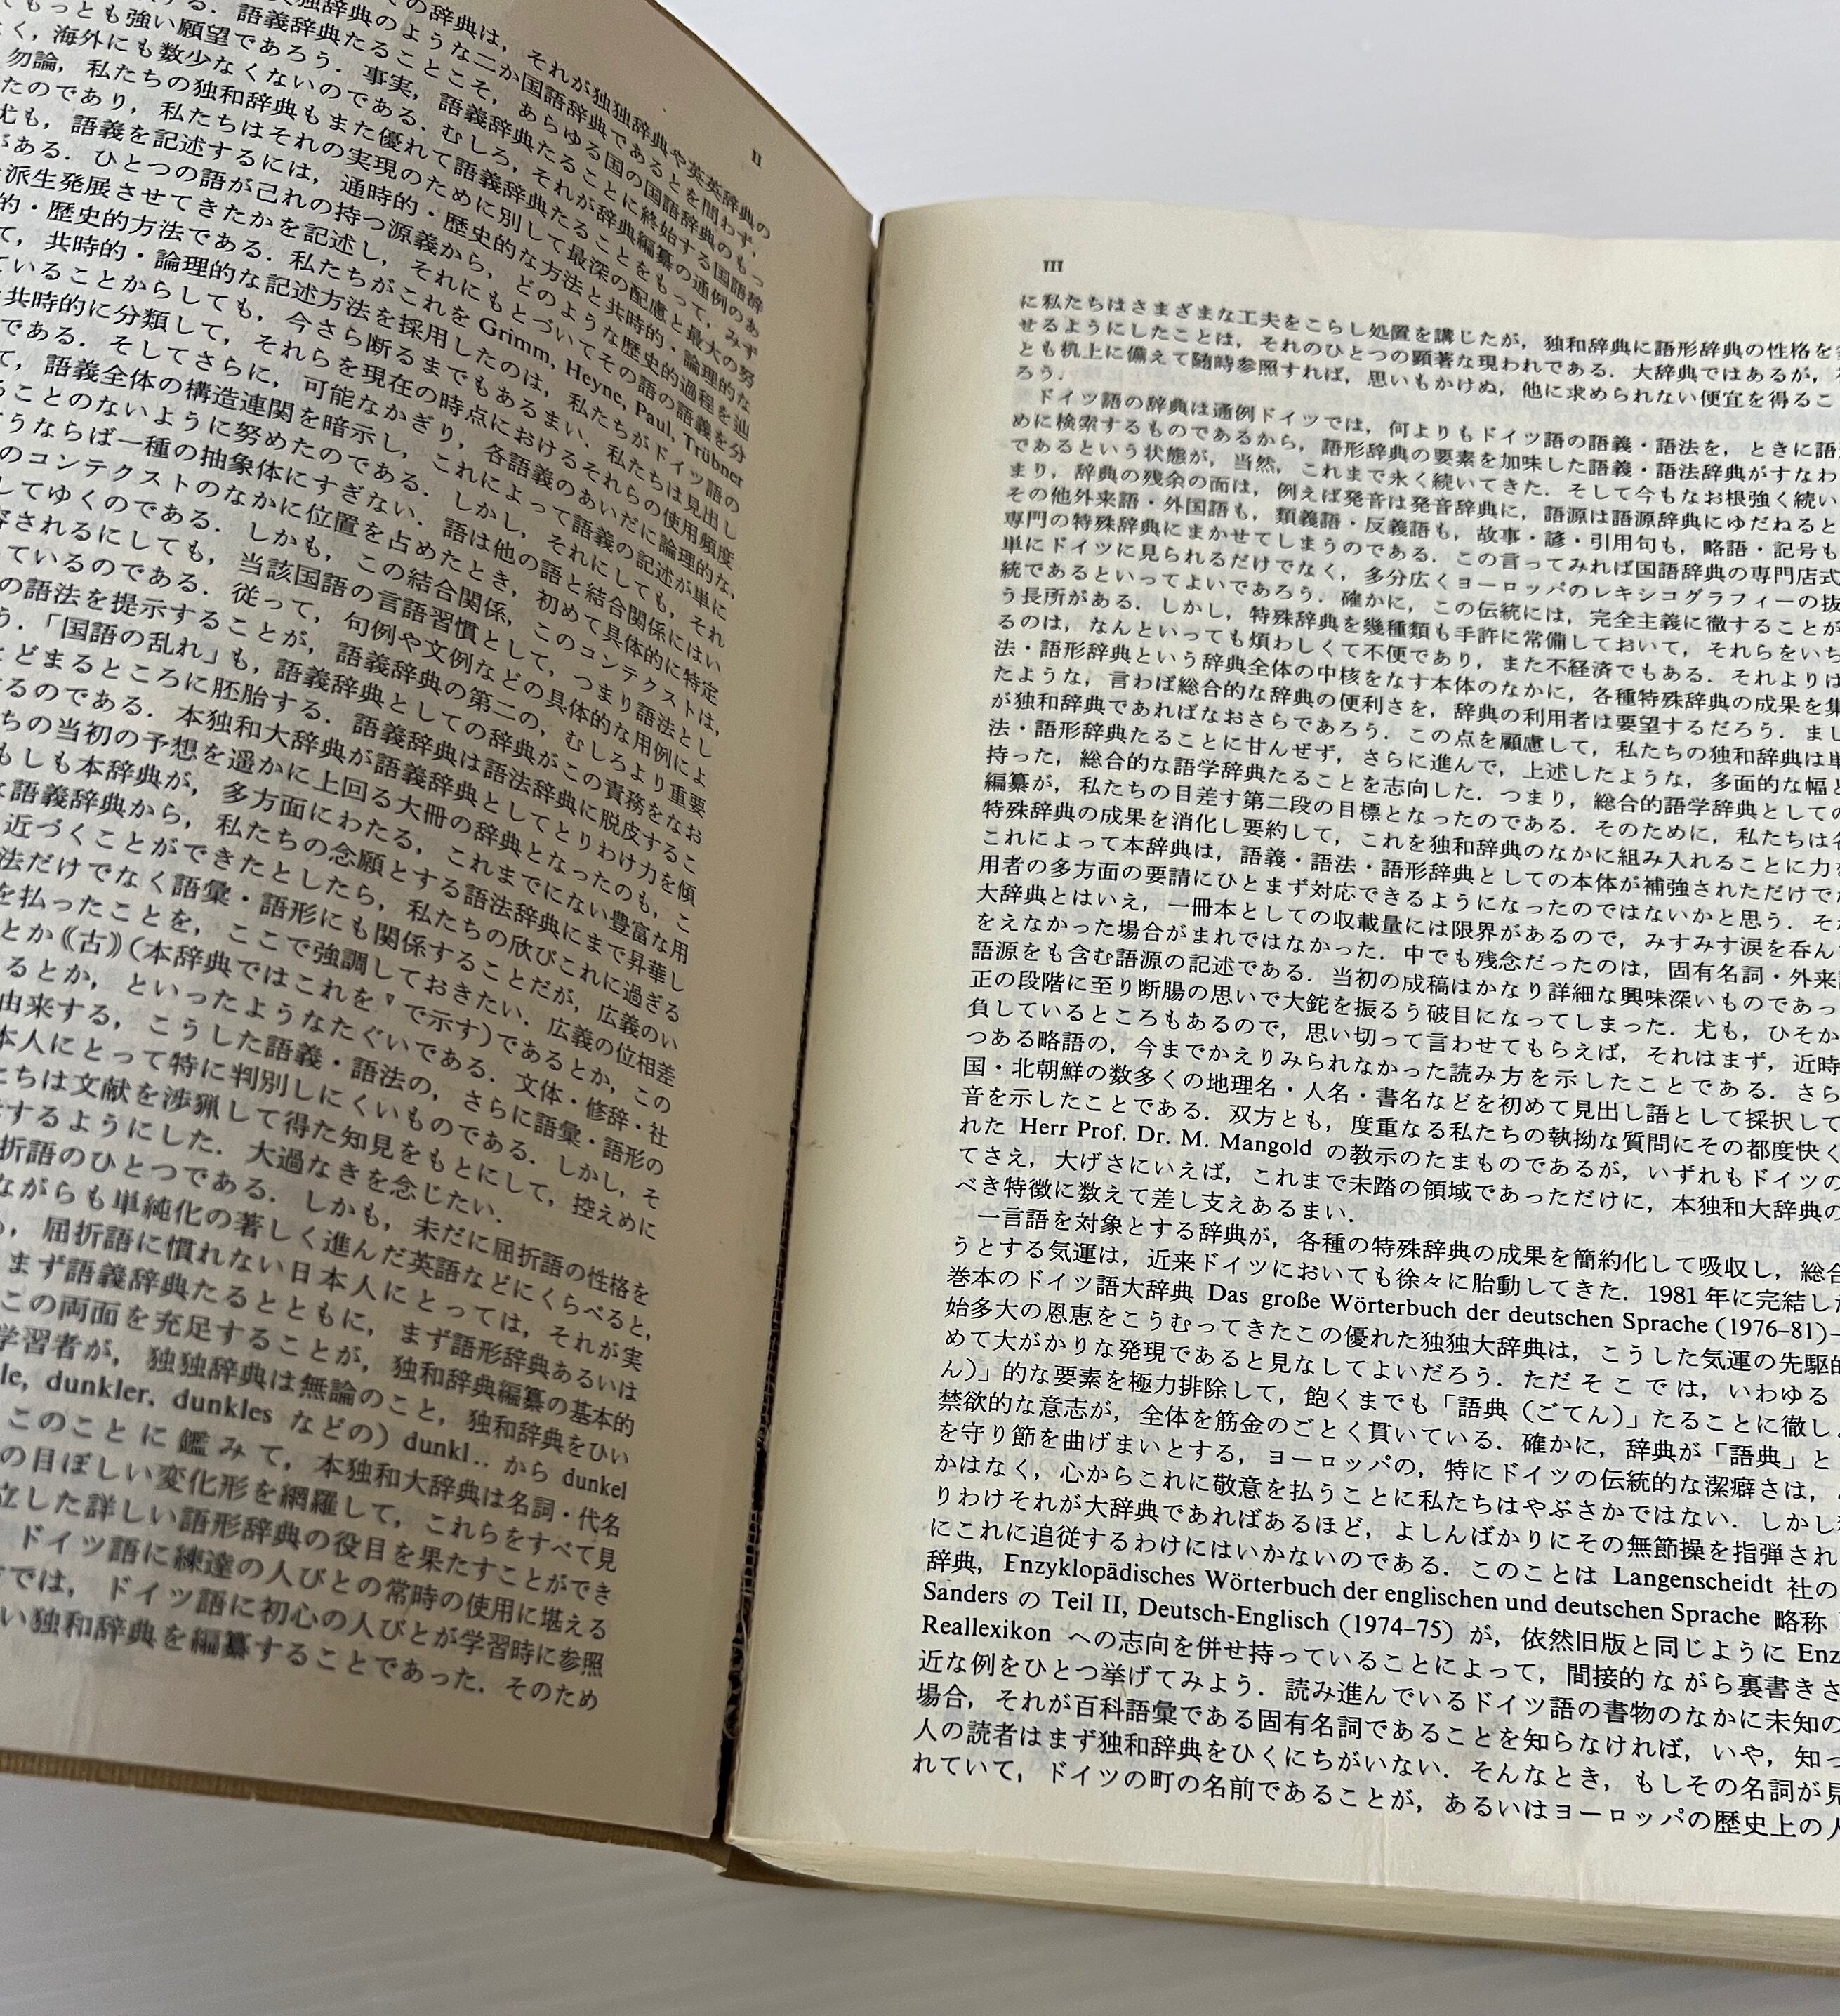 II
の辞典は，それが独独辞典や英英辞典の
独辞典のような二か国語辞典であるとを問わず，
語義辞典たることこそ，あらゆる国の国語辞典のもっ
もっとも強い願望であろう．事実，語義辞典たることに終始する国語辞
く，海外にも数少なくないのである．むしろ，それが辞典編纂の通例のあ
勿論，私たちの独和辞典もまた優れて語義辞典たることをもって，みず
たのであり，私たちはそれの実現のために別して最深の配慮と最大の努
尤も，語義を記述するには，通時的・歴史的な方法と共時的・論理的な
がある．ひとつの語が己れの持つ源義から，どのような歴史的過程を辿
派生発展させてきたかを記述し，それにもとづいてその語の語義を分
的・歴史的方法である．私たちがこれを Grimm, Heyne, Paul, Trübner
て，共時的・論理的な記述方法を採用したのは，私たちがドイツ語の
ていることからしても，今さら断るまでもあるまい．私たちは見出し
共時的に分類して，それらを現在の時点におけるそれらの使用頻度
である．そしてさらに，可能なかぎり，各語義のあいだに論理的な，
て，語義全体の構造連関を暗示し，これによって語義の記述が単に
ることのないように努めたのである．しかし，それにしても，それ
うならば一種の抽象体にすぎない．語は他の語と結合関係にはい
のコンテクストのなかに位置を占めたとき，初めて具体的に特定
してゆくのである．しかも，この結合関係，このコンテクストは，
容されるにしても，当該国語の言語習慣として，つまり語法とし
っているのである．従って，句例や文例などの具体的な用例によ
の語法を提示することが，語義辞典の第二の，むしろより重要
う．「国語の乱れ」も，語義辞典としての辞典がこの責務をなお
とどまるところに胚胎する．語義辞典は語法辞典に脱皮するこ
するのである．本独和大辞典が語義辞典としてとりわけ力を傾
ちの当初の予想を遥かに上回る大冊の辞典となったのも，こ
もしも本辞典が，多方面にわたる，これまでにない豊富な用
な語義辞典から，私たちの念願とする語法辞典にまで昇華し
近づくことができたとしたら，私たちの欣びこれに過ぎる
法だけでなく語彙・語形にも関係することだが，広義のい
を払ったことを，ここで強調しておきたい．広義の位相差
とか《古》（本辞典ではこれを▽で示す）であるとか，この
るとか，といったようなたぐいである．文体・修辞・社
由来する，こうした語義・語法の，さらに語彙・語形の
本人にとって特に判別しにくいものである．しかし，そ
たちは文献を渉猟して得た知見をもとにして，控えめに
するようにした．大過なきを念じたい．
折語のひとつである．しかも，未だに屈折語の性格を
ながらも単純化の著しく進んだ英語などにくらべると，
，屈折語に慣れない日本人にとっては，それが実
まず語義辞典たるとともに，まず語形辞典あるいは
この両面を充足することが，独和辞典編纂の基本的
学習者が，独独辞典は無論のこと，独和辞典をひい
le, dunkler, dunkles などの）dunkl.. から dunkel
このことに鑑みて，本独和大辞典は名詞・代名
の目ぼしい変化形を網羅して，これらをすべて見
立した詳しい語形辞典の役目を果たすことができ
ドイツ語に練達の人びとの常時の使用に堪える
では，ドイツ語に初心の人びとが学習時に参照
い独和辞典を編纂することであった．そのため
III
に私たちはさまざまな工夫をこらし処置を講じたが，独和辞典に語形辞典の性格を
せるようにしたことは，それのひとつの顕著な現われである．大辞典ではあるが，
とも机上に備えて随時参照すれば，思いもかけぬ，他に求められない便宜を得るこ
ろう．
ドイツ語の辞典は通例ドイツでは，何よりもドイツ語の語義・語法を，ときに語
めに検索するものであるから，語形辞典の要素を加味した語義・語法辞典がすなわ
であるという状態が，当然，これまで永く続いてきた．そして今もなお根強く続い
まり，辞典の残余の面は，例えば発音は発音辞典に，語源は語源辞典にゆだねると
その他外来語・外国語も，類義語・反義語も，故事・諺・引用句も，略語・記号も
専門の特殊辞典にまかせてしまうのである．この言ってみれば国語辞典の専門店式
単にドイツに見られるだけでなく，多分広くヨーロッパのレキシコグラフィーの抜
統であるといってよいであろう．確かに，この伝統には，完全主義に徹することが
う長所がある．しかし，特殊辞典を幾種類も手許に常備しておいて，それらをいち
るのは，なんといっても煩わしくて不便であり，また不経済でもある．それよりは
法・語形辞典という辞典全体の中核をなす本体のなかに，各種特殊辞典の成果を集
たような，言わば総合的な辞典の便利さを，辞典の利用者は要望するだろう．まし
が独和辞典であればなおさらであろう．この点を顧慮して，私たちの独和辞典は単
法・語形辞典たることに甘んぜず，さらに進んで，上述したような，多面的な幅と
持った，総合的な語学辞典たることを志向した．つまり，総合的語学辞典としての
編纂が，私たちの目差す第二段の目標となったのである．そのために，私たちは各
特殊辞典の成果を消化し要約して，これを独和辞典のなかに組み入れることに力を
これによって本辞典は，語義・語法・語形辞典としての本体が補強されただけでな
用者の多方面の要請にひとまず対応できるようになったのではないかと思う．そ
大辞典とはいえ，一冊本としての収載量には限界があるので，みすみす涙を呑ん
をえなかった場合がまれではなかった．中でも残念だったのは，固有名詞・外来語
語源をも含む語源の記述である．当初の成稿はかなり詳細な興味深いものであっ
正の段階に至り断腸の思いで大鉈を振るう破目になってしまった．尤も，ひそか
負しているところもあるので，思い切って言わせてもらえば，それはまず，近時
つある略語の，今までかえりみられなかった読み方を示したことである．さら
国・北朝鮮の数多くの地理名・人名・書名などを初めて見出し語として採択して
音を示したことである．双方とも，度重なる私たちの執拗な質問にその都度快く
れた Herr Prof. Dr. M. Mangold の教示のたまものであるが，いずれもドイツの
てさえ，大げさにいえば，これまで未踏の領域であっただけに，本独和大辞典の
べき特徴に数えて差し支えあるまい．
一言語を対象とする辞典が，各種の特殊辞典の成果を簡約化して吸収し，総合
うとする気運は，近来ドイツにおいても徐々に胎動してきた．1981 年に完結した
巻本のドイツ語大辞典 Das große Wörterbuch der deutschen Sprache (1976–81)―
始多大の恩恵をこうむってきたこの優れた独独大辞典は，こうした気運の先駆的
めて大がかりな発現であると見なしてよいだろう．ただそこでは，いわゆる「
ん）」的な要素を極力排除して，飽くまでも「語典（ごてん）」たることに徹し
禁欲的な意志が，全体を筋金のごとく貫いている．確かに，辞典が「語典」と
を守り節を曲げまいとする，ヨーロッパの，特にドイツの伝統的な潔癖さは，
かはなく，心からこれに敬意を払うことに私たちはやぶさかではない．しかし
りわけそれが大辞典であればあるほど，よしんばかりにその無節操を指弾され
にこれに追従するわけにはいかないのである．このことは Langenscheidt 社の
辞典，Enzyklopädisches Wörterbuch der englischen und deutschen Sprache 略称
Sanders の Teil II, Deutsch-Englisch (1974–75) が，依然旧版と同じように Enz
Reallexikon への志向を併せ持っていることによって，間接的ながら裏書きさ
近な例をひとつ挙げてみよう．読み進んでいるドイツ語の書物のなかに未知の
場合，それが百科語彙である固有名詞であることを知らなければ，いや，知っ
人の読者はまず独和辞典をひくにちがいない．そんなとき，もしその名詞が見
れていて，ドイツの町の名前であることが，あるいはヨーロッパの歴史上の人